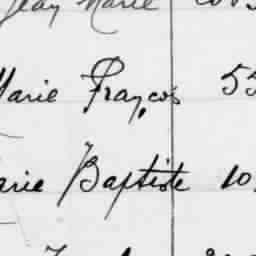 Jean Marie
Marie François 55
Marie Baptiste 10